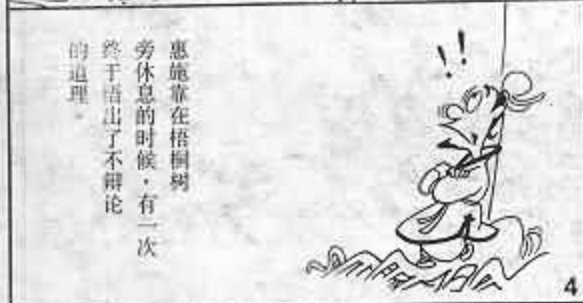 惠施靠在梧桐树
旁休息的时候，有一次
终于悟出了不辩论
的道理。
!!
4